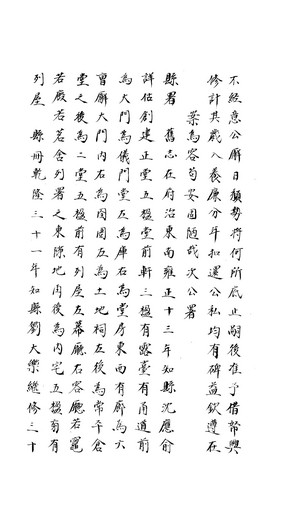 不經意公廨日頹勢將何所底止嗣後准予借帑興
修計其歲入養廉分年扣還公私均有碑益欽遵在
案為容苟安因隨哉次公署
縣署　舊志在府治東南雍正十三年知縣沈應俞
詳估創建正堂五楹堂前軒三楹有露臺有甬道前
為大門為儀門堂左為庫右為堂房東西有廊為六
曹廨大門内右為囹圄左為土地祠左後為常平倉
堂之後為二堂五楹前有列屋左幕廳右客廳若竈
若廄若茗舍列署之東隙地内後為内宅五楹旁有
列屋　縣冊乾隆三十一年知縣劉大樂繼修三十